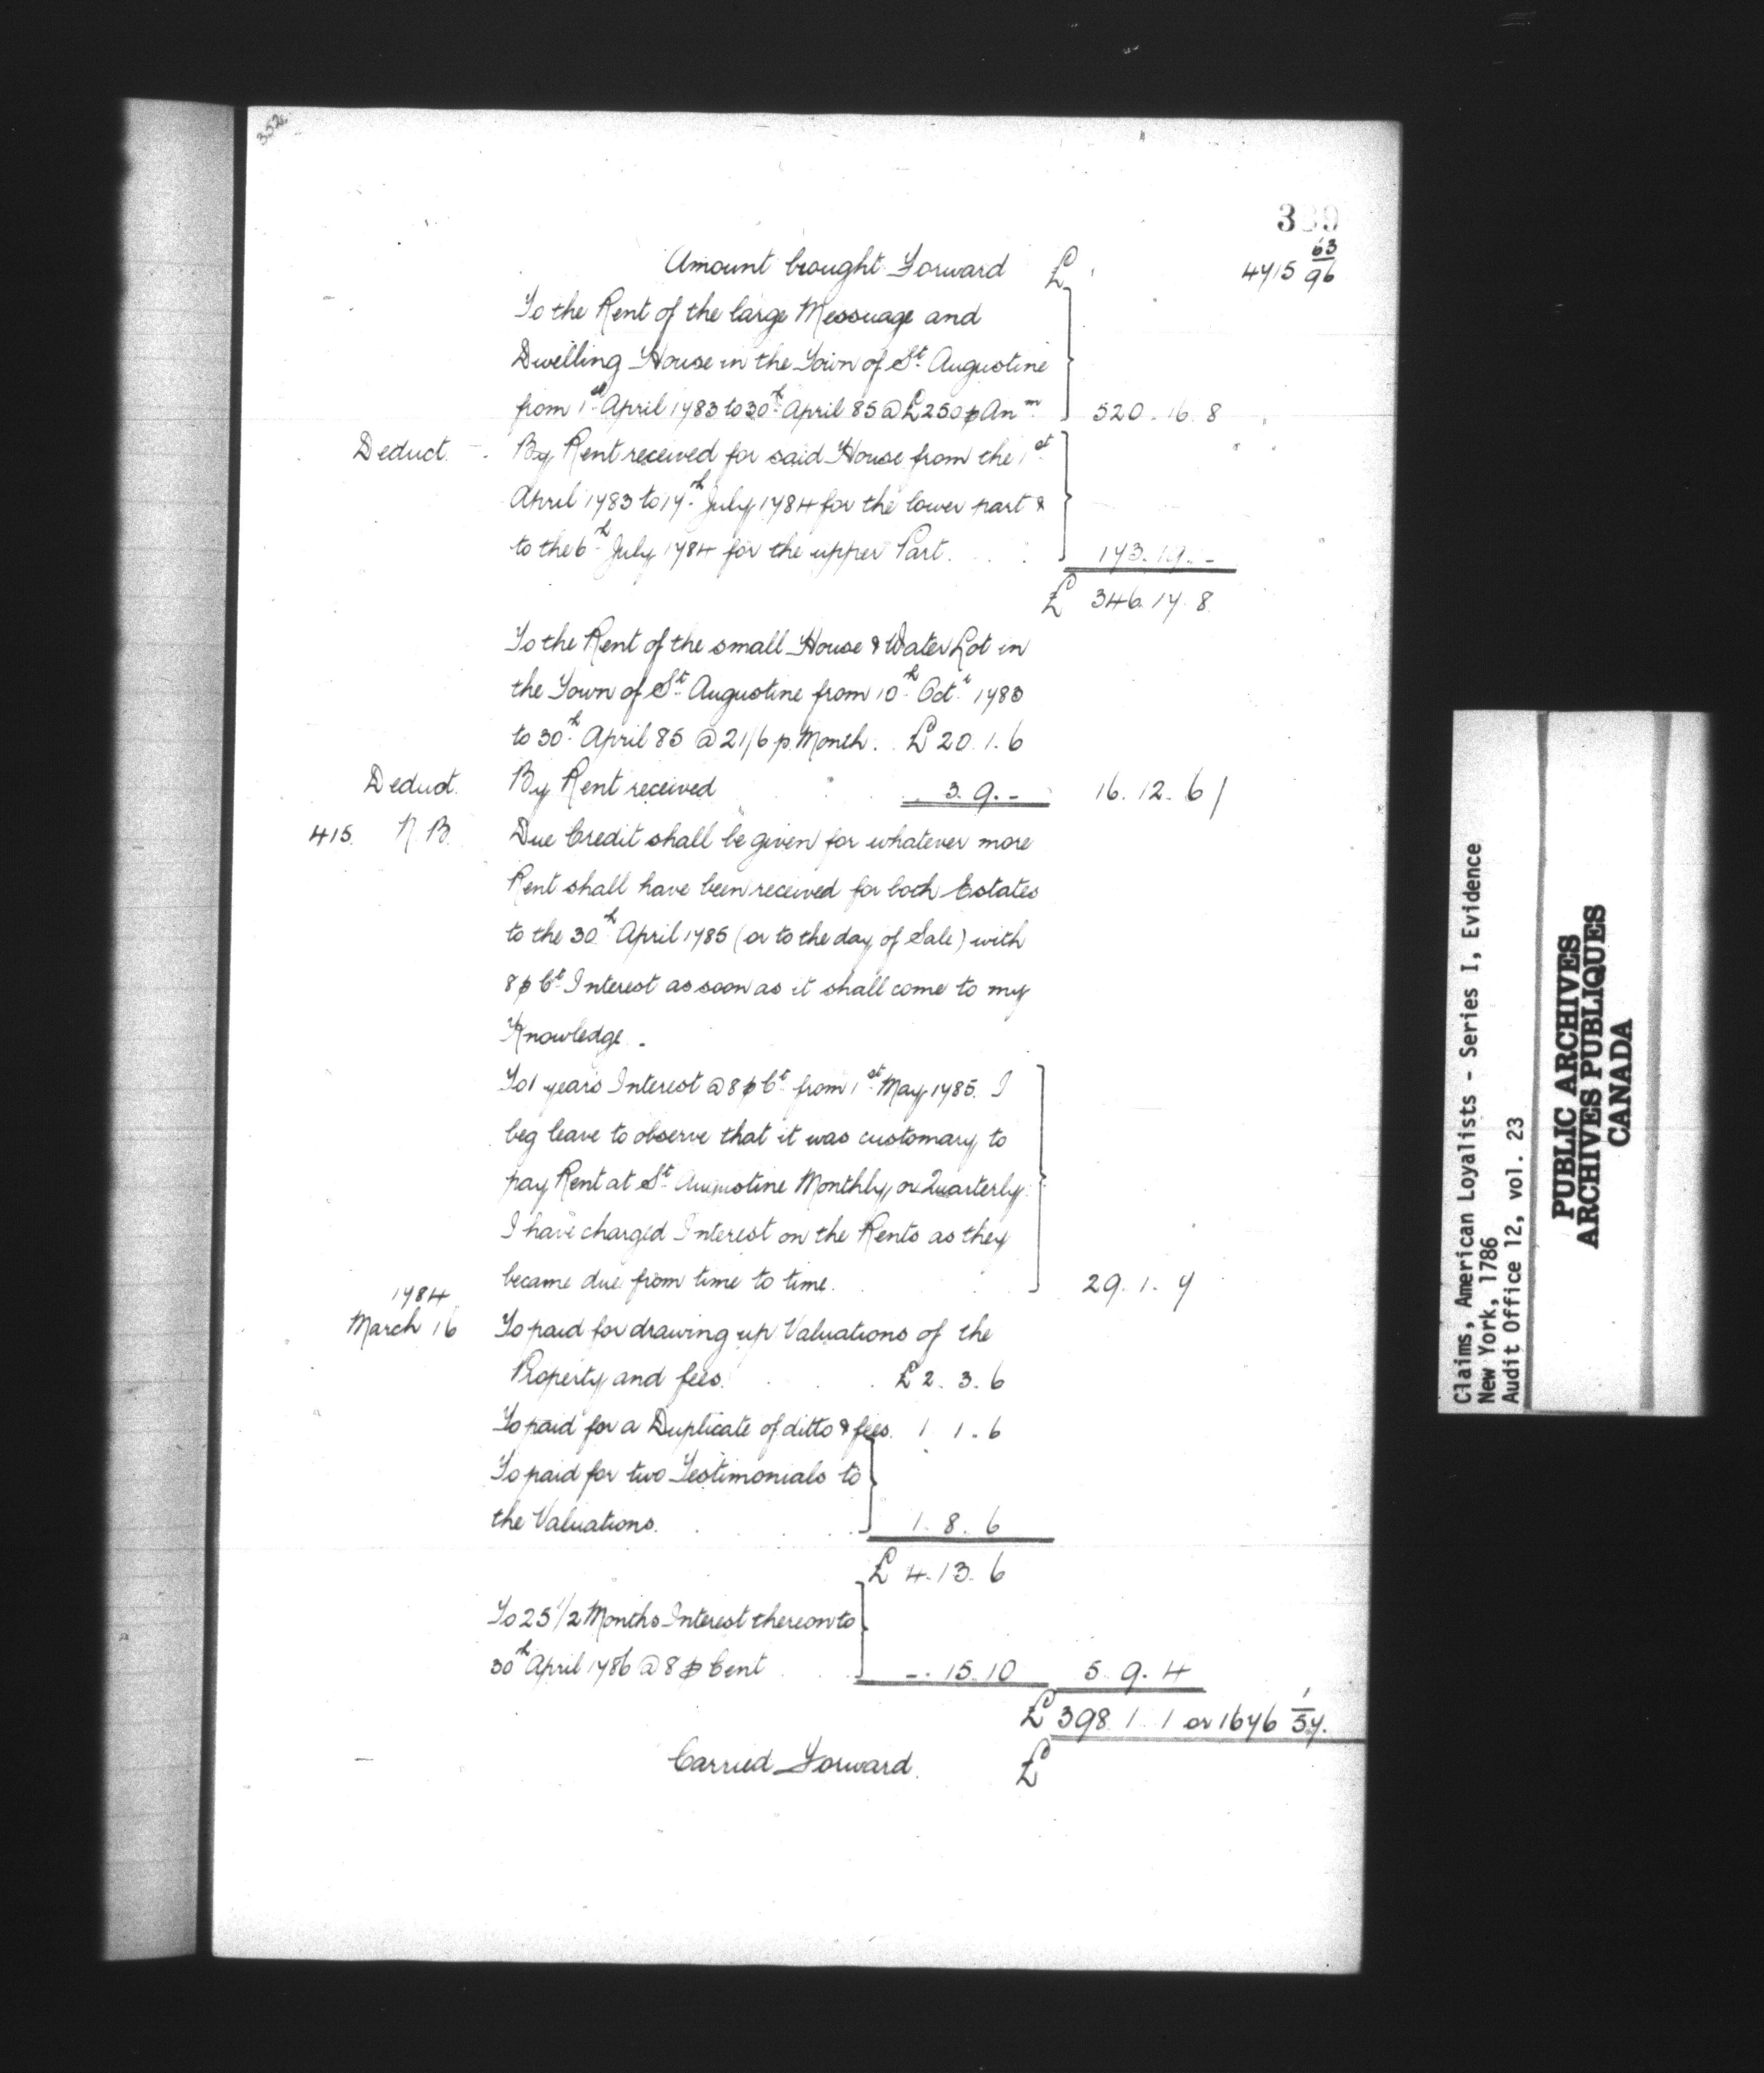 352
3 9
Amount brought Forward £ 4715 63/96
To the Rent of the large Messuage and
Dwelling House in the Town of St. Augustine
from 1st April 1783 to 30th April 85 @ £250 p Anm 520. 16. 8
Deduct. By Rent received for said House from the 1st
April 1783 to 17th July 1784 for the lower part &
to the 6th July 1784 for the upper Part. 173. 19. -
£ 346. 17. 8
To the Rent of the small House & Water Lot in
the Town of St. Augustine from 10th Octr 1783
to 30th April 85 @ 21/6 p Month. £ 20. 1. 6
Deduct. By Rent received 3. 9. - 16. 12. 6/
415. N B. Due Credit shall be given for whatever more
Rent shall have been received for both Estates
to the 30th April 1785 (or to the day of Sale) with
8 p Ct Interest as soon as it shall come to my
Knowledge.
To 1 years Interest @ 8 p Ct from 1st May 1785. I
beg leave to observe that it was customary to
pay Rent at St. Augustine Monthly or Quarterly.
I have charged Interest on the Rents as they
became due from time to time. 29. 1. 7
1784
March 16 To paid for drawing up Valuations of the
Property and fees. £ 2. 3. 6
To paid for a Duplicate of ditto & fees. 1 1. 6
To paid for two Testimonials to
the Valuations. 1. 8. 6
£ 4. 13. 6
To 25 1/2 Months Interest thereon to
30th April 1786 @ 8 p Cent -. 15. 10 5. 9. 4
£ 398. 1. 1 or 1676 1/57.
Carried Forward. £
Claims, American Loyalists - Series I, Evidence
New York, 1786
Audit Office 12, vol. 23
PUBLIC ARCHIVES
ARCHIVES PUBLIQUES
CANADA